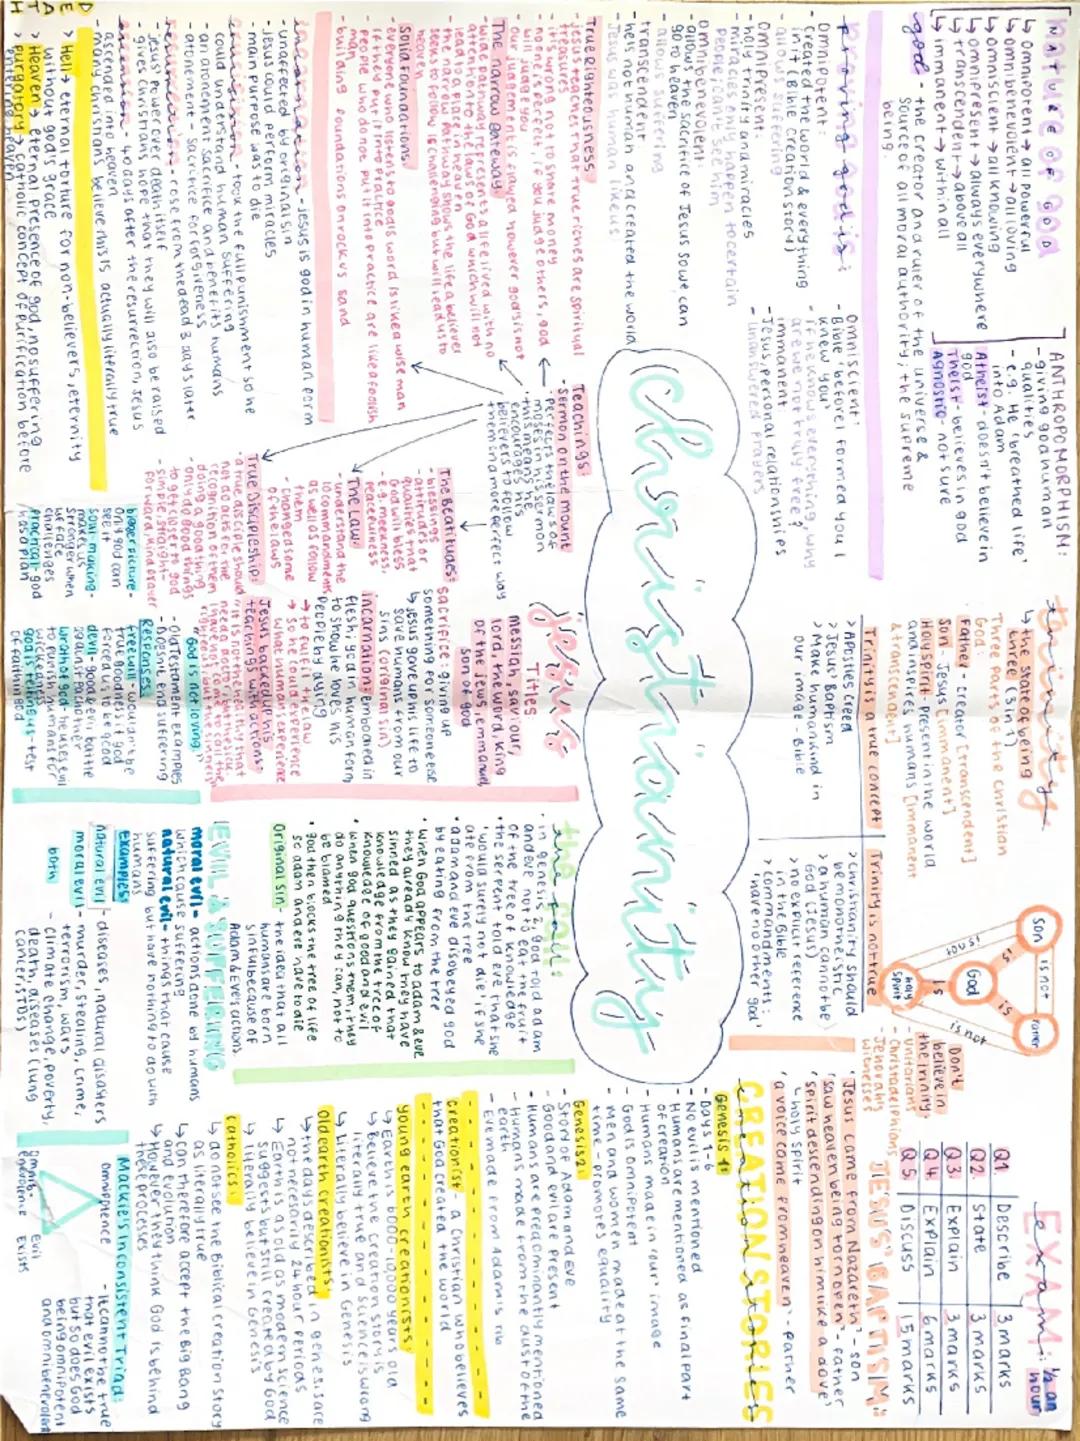 NATURE OF GOD
↳ Omnipotent → all powerful
↳ omnibenevolent → all loving
↳ omniscient → all knowing
↳ omnipresent → always everywhere
↳ transcendent → above all
↳ immanent → within all
god - the creator and ruler of the universe &
source of all moral authority; the supreme
being.
ANTHROPOMORPHISM:
- giving god human
qualities
- e.g. He 'breathed life'
into Adam
Atheist - doesn't believe in
god
Theist - believes in god
Agnostic - not sure
proving god is:
Omnipotent:
- created the world & everything
in it (Bible creation story)
- allows suffering
Omnipresent:
- holy trinity and miracles
- miracles only happen to certain
people, can't see him
Omnibenevolent:
- allows the sacrifice of Jesus so we can
go to heaven
- allows suffering
transcendent:
- he's not human and created the world
- Jesus was human like us
Omniscient:
- Bible - 'before I formed you I
knew you'
- if he knows everything, why
are we not truly free?
immanent:
- Jesus, personal relationships
- unanswered prayers
trinity
↳ the state of being
three (3 in 1)
Three parts of the Christian
God:
Father - creator [transcendent]
Son - Jesus [immanent]
Holy Spirit - present in the world
and inspires humans [immanent
& transcendent]
Trinity is a true concept
> Apostles Creed
> Jesus' Baptism
> 'Make humankind in
our image' - Bible
Trinity is not true
> Christianity should
be monotheistic
> a human cannot be
God (Jesus)
> no explicit reference
in the Bible
> commandments:
'have no other god'
son
is not
father
is
God
is
is not
is
is not
holy spirit
Don't
believe in
the trinity:
- Unitarians
- Christadelphians
- Jehovah's
witnesses
EXAM: ½ an hour
Q1 Describe 3 marks
Q2 State 3 marks
Q3 Explain 3 marks
Q4 Explain 6 marks
Q5 Discuss 15 marks
JESUS' BAPTISM:
'Jesus came from Nazareth' - son
'saw heaven being torn open' - father
'spirit descending on him like a dove'
↳ holy spirit
'a voice came from heaven' - father
CREATION STORIES
Genesis 1:
- Days 1-6
- No evil is mentioned
- Humans are mentioned as final part
of creation
- Humans made in 'our' image
- God is omnipotent
- Men and women made at the same
time - promotes equality
Genesis 2:
- Story of Adam and Eve
- Good and evil are present
- Humans are predominantly mentioned
- Humans made from the dust of the
earth
- Eve made from Adam's rib
creationist - a Christian who believes
that God created the world
young earth creationists:
↳ Earth is 6000-10,000 years old
↳ Believe the creation story is
literally true and science is wrong
↳ Literally believe in Genesis
Old earth creationists:
↳ the days described in genesis are
not necessarily 24 hour periods
↳ Earth is as old as modern science
suggests but still created by God
↳ literally believe in Genesis
Catholics:
↳ do not see the Biblical creation story
as literally true
↳ can therefore accept the Big Bang
and evolution
↳ However they think God is behind
these processes
christianity
True righteousness
- Jesus teaches that true riches are spiritual
treasures
- it's wrong not to share money
- no one is perfect, if you judge others, god
will judge you
- our judgement is flawed however god's is not
The narrow gateway
- wide pathway represents a life lived with no
attention to the laws of God which will not
lead to a place in heaven
- the narrow pathway shows the life a believer
seeks to follow is challenging but will lead us to
heaven
Solid Foundations:
- everyone who listens to god's word is like a wise man
if they put it into practice
- people who do not put it into practice are like a foolish
man
- building foundations on rock vs sand
Teachings:
- sermon on the mount
- perfects the laws of
moses in his sermon
- this means he
encourages his
believers to follow
them in a more perfect way
The Beatitudes:
- blessings
- attitudes or
qualities that
God will bless
- e.g. meekness,
peacefulness
The Law:
- understand the
10 commandments
as well as follow
them
- changed some
of the laws
True discipleship:
- a true disciple should
not do acts for the
recognition of them
- doing a good thing
- only do good things
to get closer to god
- simple, straight-
forward, kind prayer
jesus
Titles
messiah, saviour,
lord, the word, king
of the jews, emmanuel
son of god
sacrifice: giving up
something for someone else
↳ jesus gave up his life to
save humans from our
sins (original sin)
incarnation: embodied in
flesh; god in human form
to show he loves his
people by dying
→ to fulfil the law
→ so he could experience
what humans experience
Jesus backed up his
teachings with actions
incarnation - jesus is god in human form
- unaffected by original sin
- jesus could perform miracles
- main purpose was to die
crucifixion - took the full punishment so he
could understand human suffering
- an atonement sacrifice and benefits humans
- atonement - sacrifice for forgiveness
resurrection - rose from the dead 3 days later
- jesus' power over death itself
- gives Christians hope that they will also be raised
ascension - 40 days after the resurrection, Jesus
ascended into heaven
- many christians believe this is actually litrally true
DEATH
> Hell → eternal torture for non-believers, eternity
without god's grace
> Heaven → eternal presence of god, no suffering
> Purgatory → catholic concept of purification before
entering heaven
the fall:
• in genesis 2 god told adam
and eve not to eat the fruit
of the tree of knowledge
• the serpent told eve that she
'would surely not die' if she
ate from the tree
• adam and eve disobeyed god
by eating from the tree
• When God appears to adam & eve
they already know they have
sinned as they gained that
knowledge from the tree of
knowledge of good and evil
• when god questions them they
do anything they can, not to
be blamed
• god then blocks the tree of life
so adam and eve have to die
Original sin - the idea that all
humans are born
sinful because of
Adam & Eve's actions
EVIL & SUFFERING
moral evil - actions done by humans
which cause suffering
natural evil - things that cause
suffering but have nothing to do with
humans
Examples:
natural evil - diseases, natural disasters
moral evil - murder, stealing, crime,
terrorism, wars
both - climate change, poverty,
death, diseases (lung
cancer, STDs)
'God is not loving.'
- Old Testament examples
- Doesn't end suffering
Responses:
free will - wouldn't be
true goodness if god
forced us to be good
devil - good & evil battle
against each other
wrath of god - he uses evil
to punish humans for
wickedness
god is testing us - test
of faith in god
bigger picture -
only god can
see it
soul-making -
makes us
stronger when
we face
challenges
practical - god
has a plan
Mackie's Inconsistent Triad:
Omnipotence
Omni-
benevolence
Evil
exists
- it cannot be true
that evil exists
but so does God
being omnipotent
and omnibenevolent